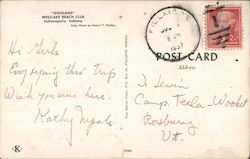 "GOLFLAND"
WESTLAKE BEACH CLUB
Indianapolis, Indiana
Color Photo by Robert F.
FILLMORE
1957
2¢
POST CARD
Address
Hi Girls
Enjoying this trip
Wish you were here.
Kathy
J. Lewin
Camp Teela-Wooket
Roxbury
Vt.
K